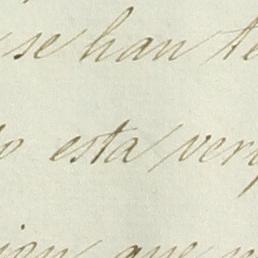 se han te
o esta ver
ion que